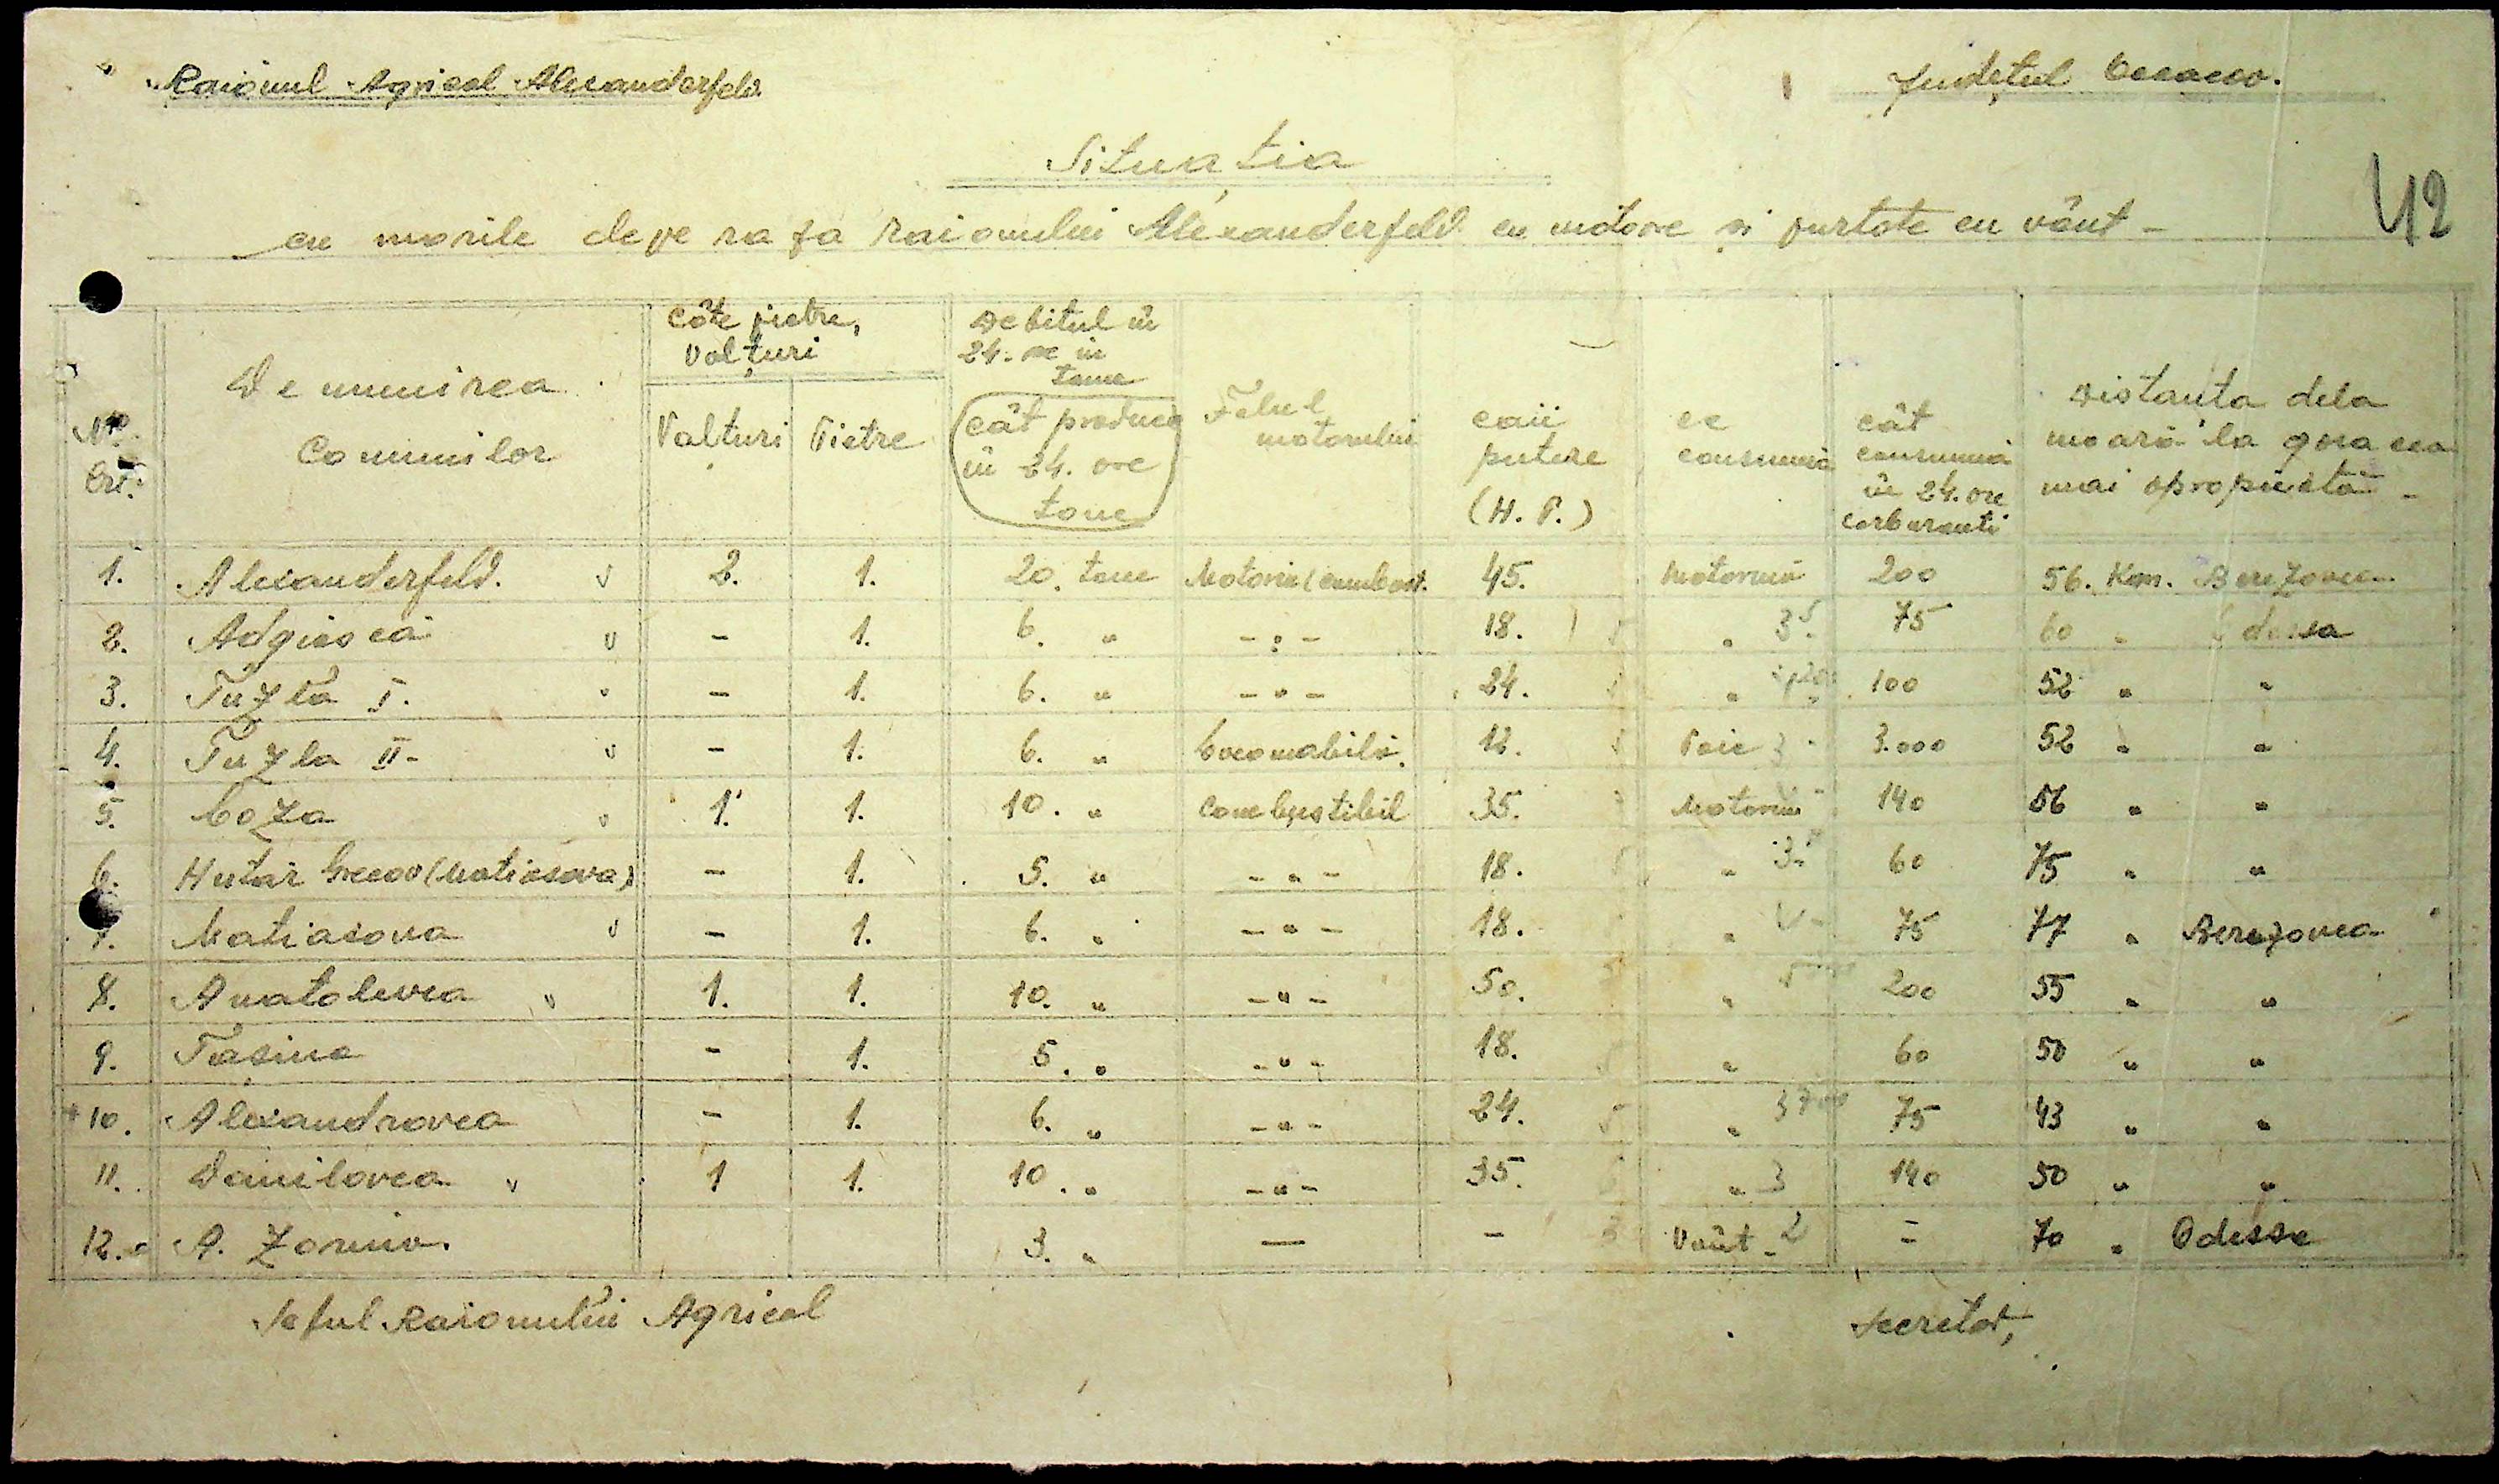 Raionul Agricol Alexanderfeld
Județul Oceacov.
Situația
42
cu morile de pe raza raionului Alexanderfeld cu motore și purtate cu vânt -
No. Crt.
Denumirea Comunilor
Câte pietre, Valțuri
Valțuri
Pietre
Debitul în 24. ore în tone
Cât produce în 24. ore tone
Felul motorului
caii putere (H. P.)
ce consumă
cât consumă în 24. ore carburanti
Distanta dela moară la gara cea mai apropiată -
1. Alexanderfeld. v 2. 1. 20. tone Motorin (combust. 45. Motorină 200 56. Km. Berezovca
2. Adgiască v - 1. 6. " - " - 18. " 3 75 60 " Odessa
3. Tuzla I. - 1. 6. " - " - 24. " 100 52 " "
4. Tuzla II - v - 1. 6. " Locomabilă. 12. Paie 3 3.000 52 " "
5. Coza 1. 1. 10. " Combustibil 35. Motorină 140 56 " "
6. Hutar (Matiasova) - 1. 5. " - " - 18. " 3 60 75 " "
7. Matiasova v - 1. 6. " - " - 18. " 75 77 " Berezovca
8. Anatolevca v 1. 1. 10. " - " - 50. " 200 55 " "
9. Tasina - 1. 5. " - " - 18. " 60 50 " "
+ 10. Alexandrovca - 1. 6. " - " - 24. 5 " 75 43 " "
11. Danilovca v 1 1. 10. " - " - 35. " 3 140 50 " "
12. A. Zorino. 3. " — - 3 Vânt - 2 - 70 " Odessa
Seful Raionului Agricol
Secretar,